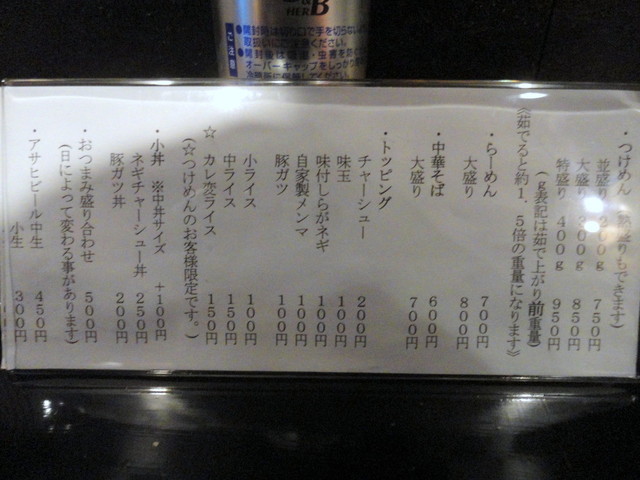 & B
HER
ご注意
●開封時は切り口で手を切らない
取扱いにご注意ください。
オーバーキャップをしっかり
・つけめん(熱盛りもできます)
並盛り 200g 750円
大盛り 300g 850円
特盛り 400g 950円
(g表記は茹で上がり前重量)
《茹でると約1.5倍の重量になります》
・らーめん 700円
大盛り 800円
・中華そば 600円
大盛り 700円
・トッピング
チャーシュー 200円
味玉 100円
味付しらがネギ 100円
自家製メンマ 100円
豚ガツ 100円
小ライス 100円
中ライス 150円
☆ カレ変ライス 150円
(☆つけめんのお客様限定です。)
・小丼 ※中丼サイズ +100円
ネギチャーシュー丼 250円
豚ガツ丼 200円
・おつまみ盛り合わせ 500円
(日によって変わる事があります)
・アサヒビール中生 450円
小生 300円